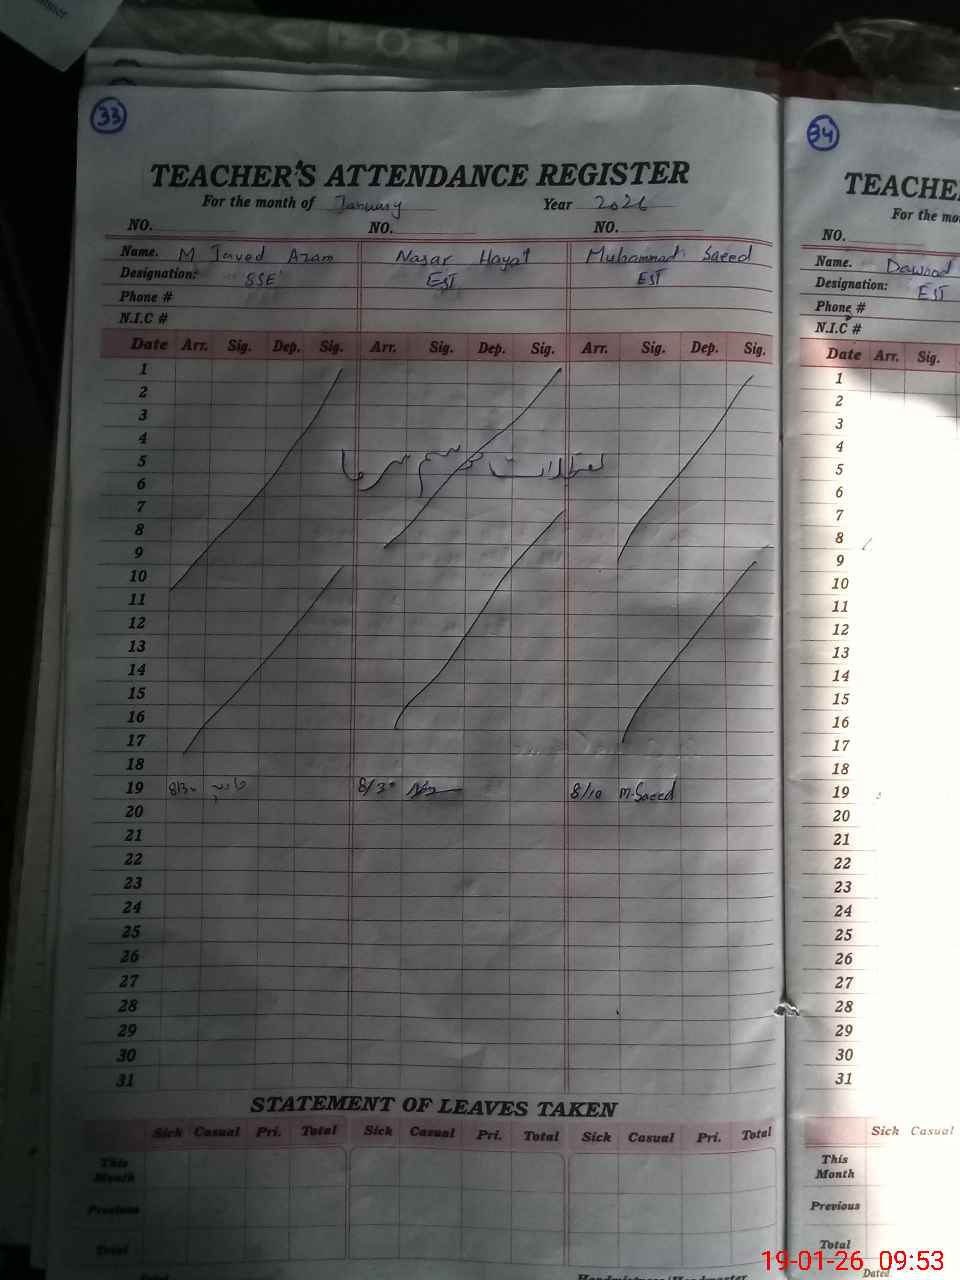 33
TEACHER'S ATTENDANCE REGISTER
For the month of January Year 2026
NO. NO. NO.
Name. M Javed Azam Nasar Hayat Muhammad Saeed
Designation: SSE EST EST
Phone #
N.I.C #
Date Arr. Sig. Dep. Sig. Arr. Sig. Dep. Sig. Arr. Sig. Dep. Sig.
1
2
3
4
تعطیلات موسم سرما
5
6
7
8
9
10
11
12
13
14
15
16
17
18
19 8/30 جاوید 8/30 8/10 M.Saeed
20
21
22
23
24
25
26
27
28
29
30
31
STATEMENT OF LEAVES TAKEN
Sick Casual Pri. Total Sick Casual Pri. Total Sick Casual Pri. Total
This Month
Previous
Total
Headmistress/Headmaster
34
TEACHE
For the mo
NO.
Name. Dawood
Designation: EST
Phone #
N.I.C #
Date Arr. Sig.
1
2
3
4
5
6
7
8
9
10
11
12
13
14
15
16
17
18
19
20
21
22
23
24
25
26
27
28
29
30
31
Sick Casual
This Month
Previous
Total
Dated
19-01-26 09:53